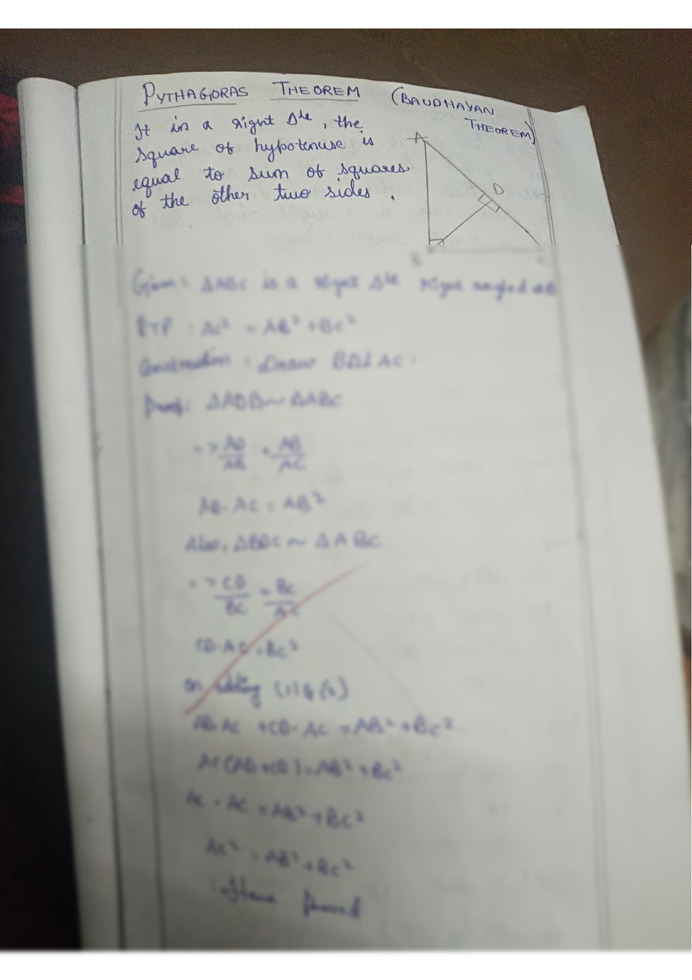 PYTHAGORAS THEOREM (BAUDHAYAN THEOREM)
It in a right Δle, the
square of hypotenuse is
equal to sum of squares
of the other two sides.
A
D
B
C
Given: ΔABC is a right Δle right angled at B
RTP: AC² = AB² + BC²
Construction: Draw BD⊥AC.
Proof: ΔADB ~ ΔABC
=> AD/AB = AB/AC
AD·AC = AB²
Also, ΔBDC ~ ΔABC
=> CD/BC = BC/AC
CD·AC = BC²
on adding (1) & (2)
AD·AC + CD·AC = AB² + BC²
AC(AD+CD) = AB² + BC²
AC·AC = AB² + BC²
AC² = AB² + BC²
Hence proved